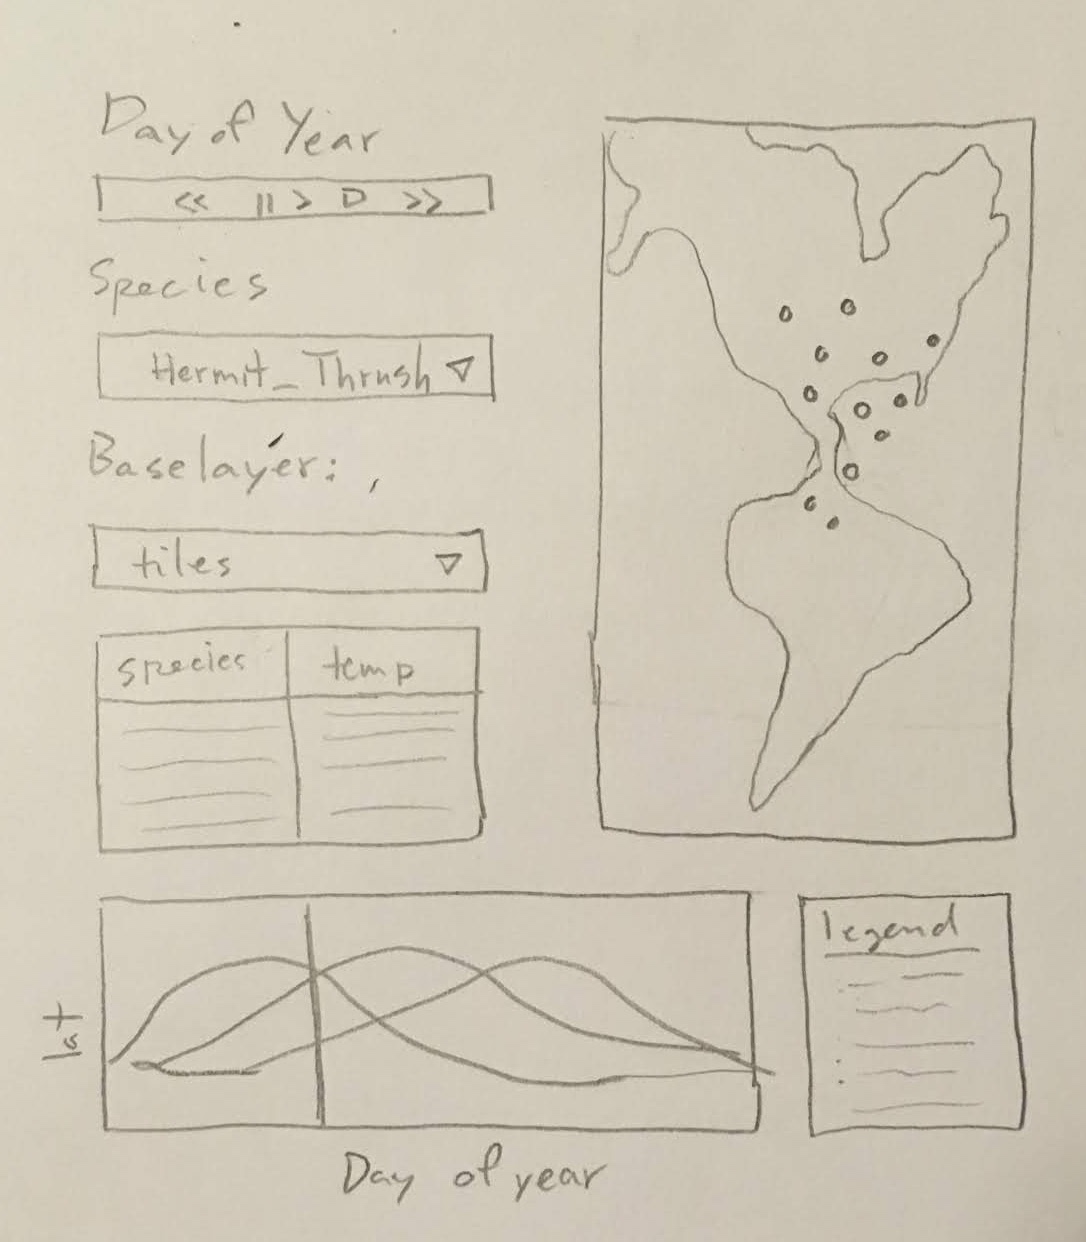 Day of Year
<< || > D >>
Species
Hermit_Thrush ▽
Baselayer: ,
tiles ▽
species temp
legend
lat
Day of year